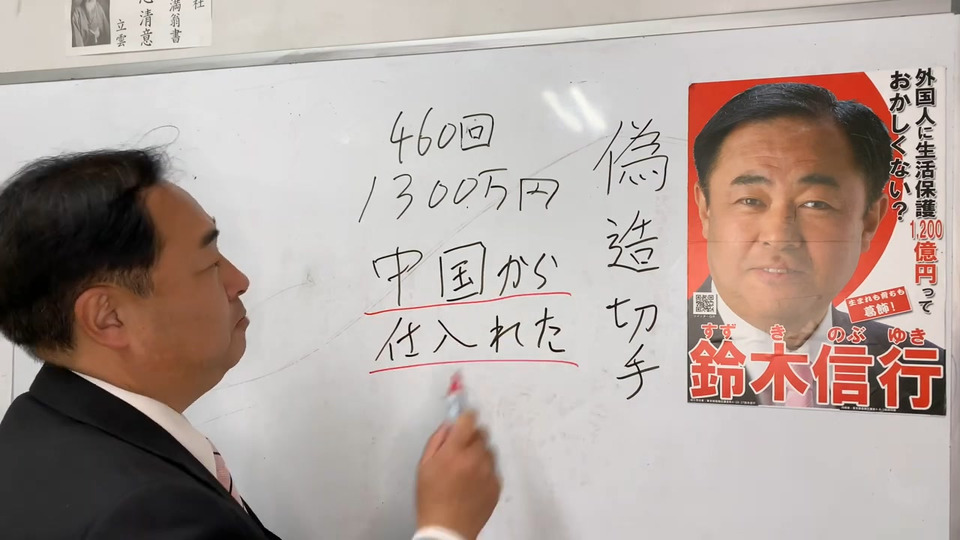 社
満翁書
心清意
立雲
460回
1300万円
中国から
仕入れた
偽造切手
外国人に生活保護
1,200億円って
おかしくない?
生まれも育ちも
葛飾!
すずきのぶゆき
鈴木信行